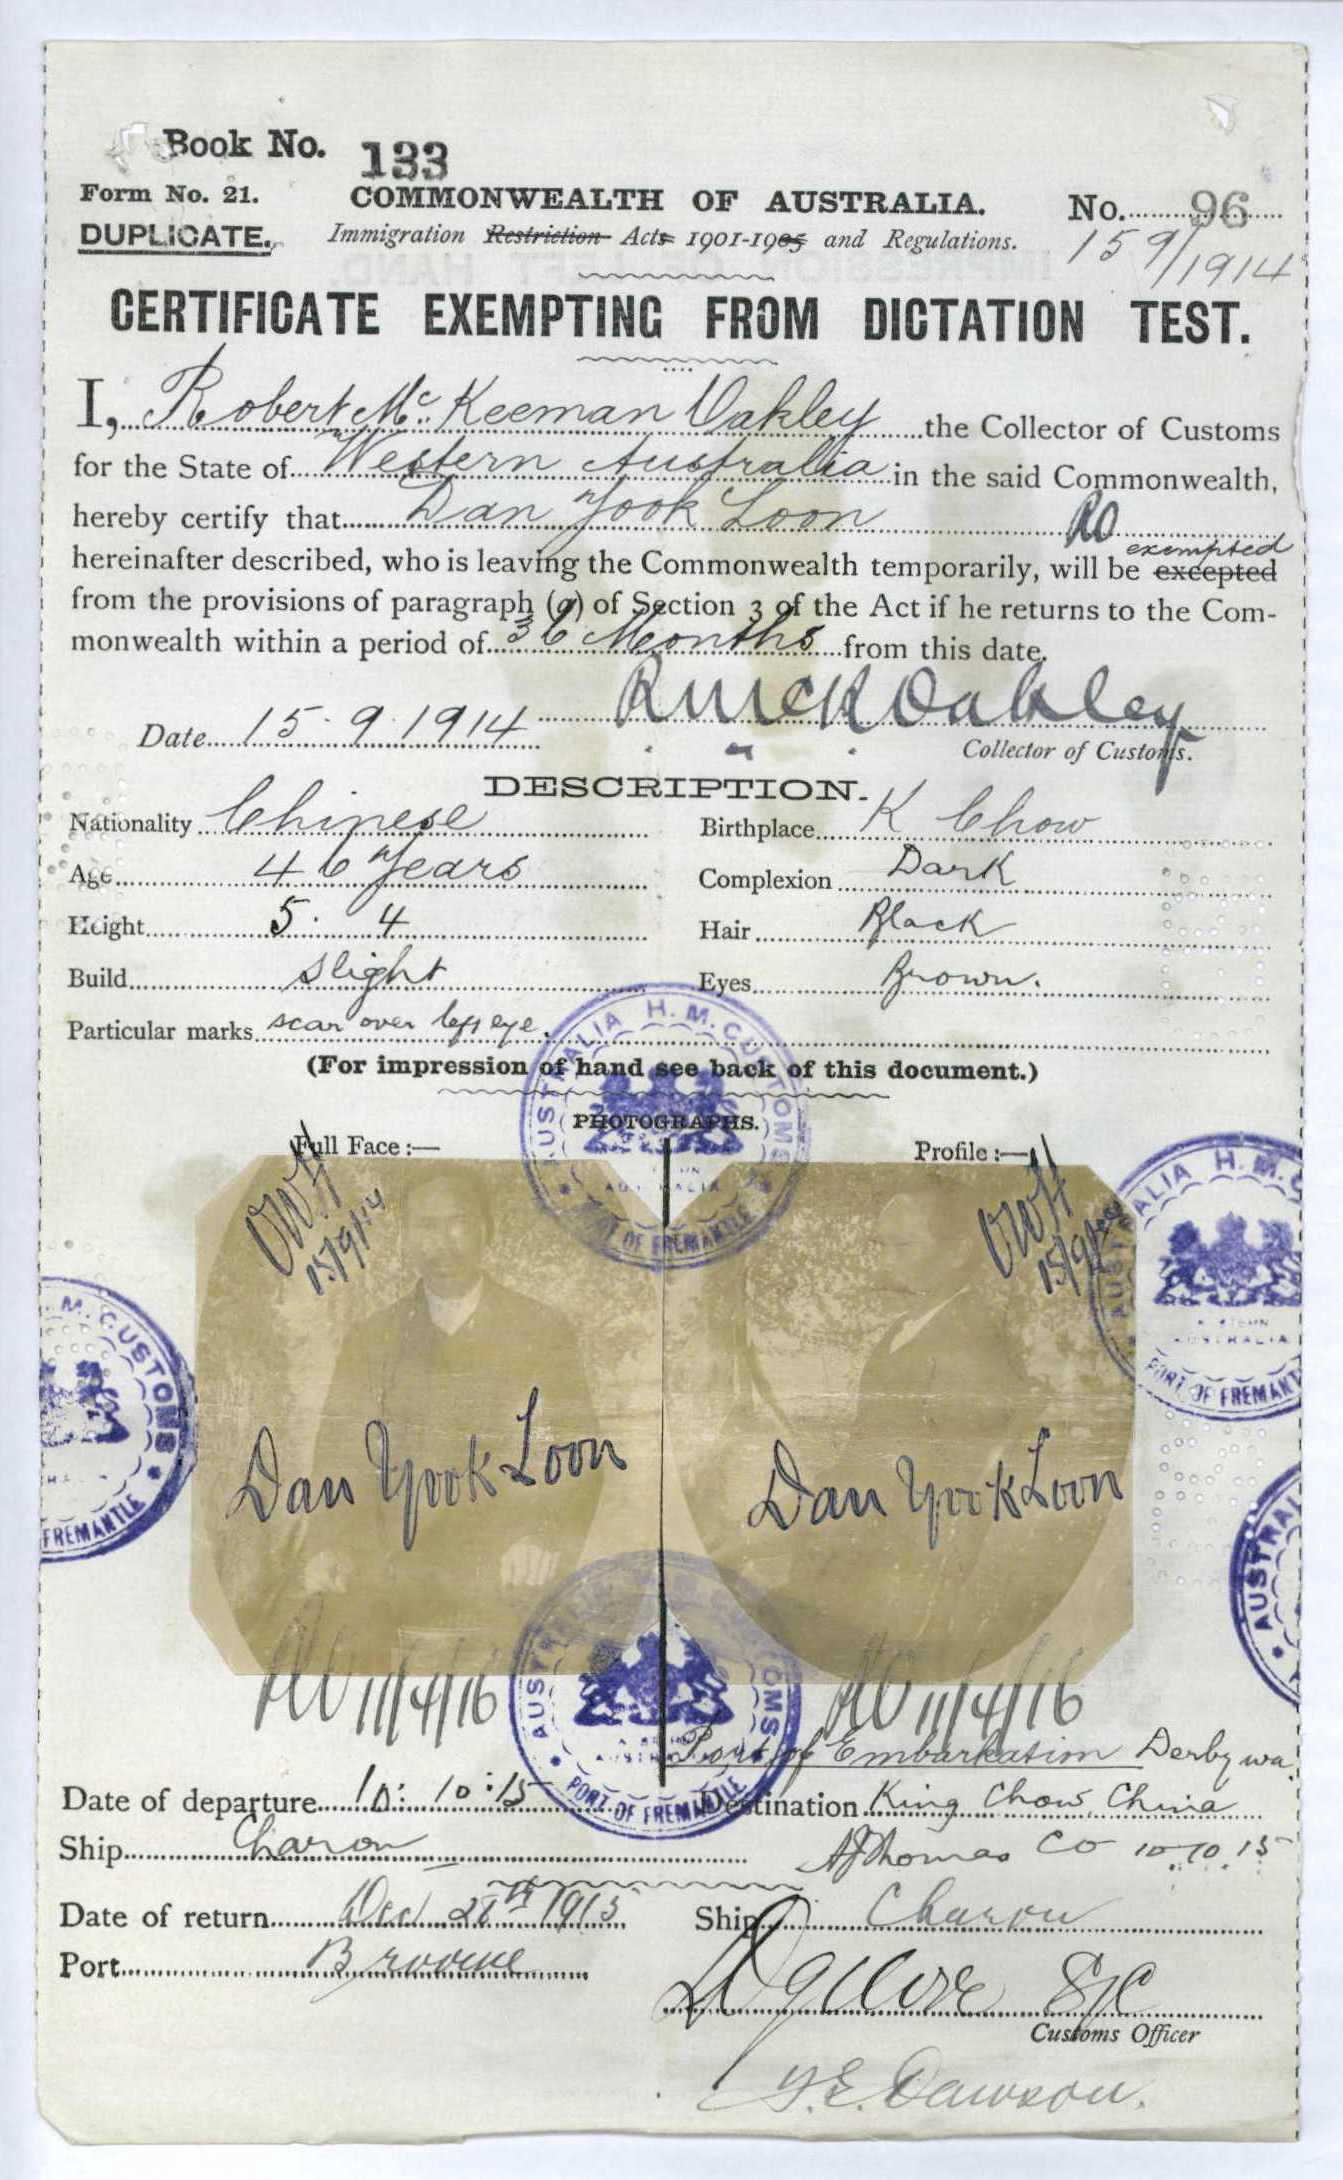 Book No. 133
Form No. 21. COMMONWEALTH OF AUSTRALIA. No. 96
DUPLICATE. Immigration Restriction Acts 1901-1905 and Regulations. 159/1914
CERTIFICATE EXEMPTING FROM DICTATION TEST.
I, Robert Mc. Keeman Oakley the Collector of Customs
for the State of Western Australia in the said Commonwealth,
hereby certify that Dan Yook Loon RO
exempted
hereinafter described, who is leaving the Commonwealth temporarily, will be excepted
from the provisions of paragraph (a) of Section 3 of the Act if he returns to the Com-
monwealth within a period of 36 Months from this date.
Date 15.9.1914 RMcKOakley
Collector of Customs.
DESCRIPTION.
Nationality Chinese Birthplace K Chow
Age 46 Years Complexion Dark
Height 5. 4 Hair Black
Build Slight Eyes Brown.
Particular marks scar over left eye.
(For impression of hand see back of this document.)
PHOTOGRAPHS.
Full Face:— Profile:—
15/9/14 15/9/14
AUSTRALIA H.M. CUSTOMS
PORT OF FREMANTLE
AUSTRALIA H.M. C
AUSTRALIA
PORT OF FREMANT
M. CUSTOMS
FREMANTLE
AUSTRAL
Dan Yook Loon Dan Yook Loon
11/4/16 11/4/16
AUSTRALIA H.M. CUSTOMS
PORT OF FREMANTLE
Port of Embarkation Derby wa.
Date of departure 10:10:15 Destination King Chow China
Ship Charon AJThomas CO 10.10.15
Date of return Dec 28th 1915 Ship Charon
Port Broome
Customs Officer
Dawson.